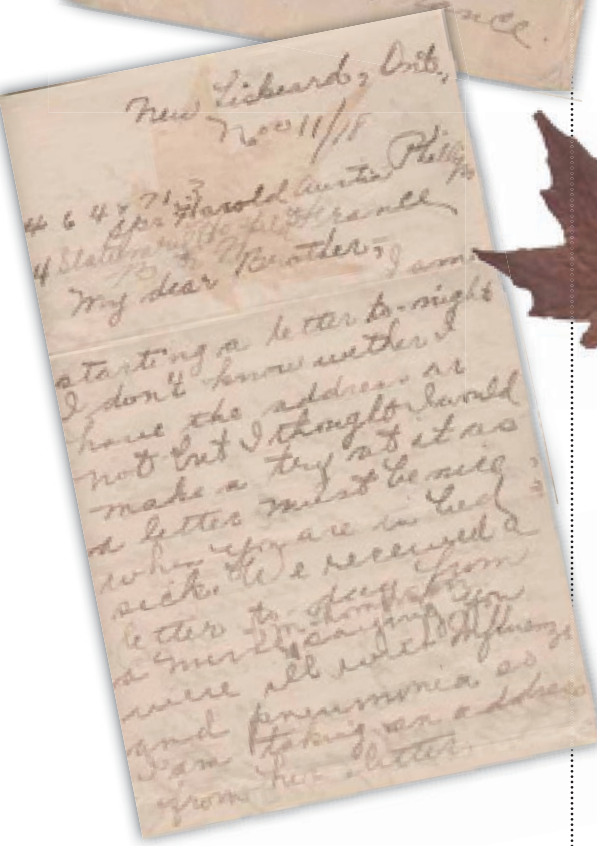 ance.
New Liskeard, Ont.,
Nov 11/18
Spr Harold Austin Phillips
France
My dear Brother,
I am
starting a letter to-night
I don't know wether I
have the address or
not but I thought I would
make a try at it as
a letter must be nice
when you are in bed
sick. We received a
letter to-day from
a nurse Thompson
saying you
were ill with Influenza
and pneumonia so
I am taking an address
from her letter.